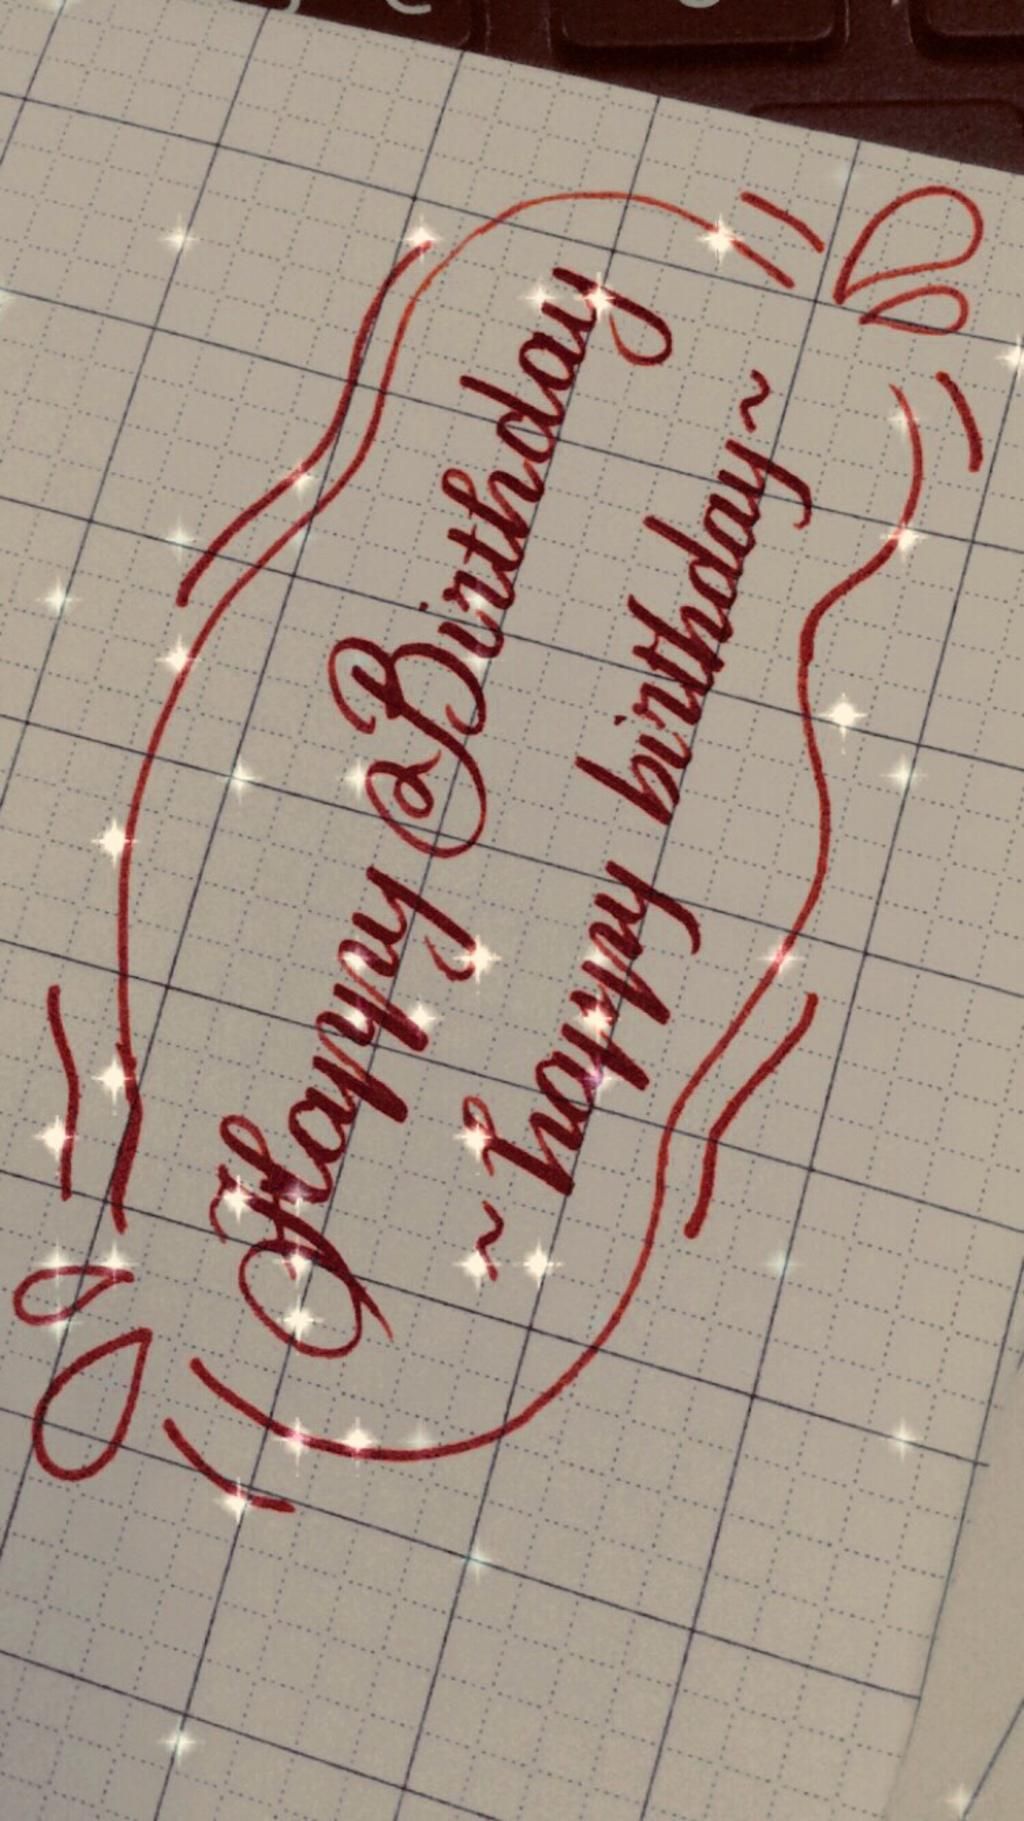 Happy Birthday
~ happy birthday ~